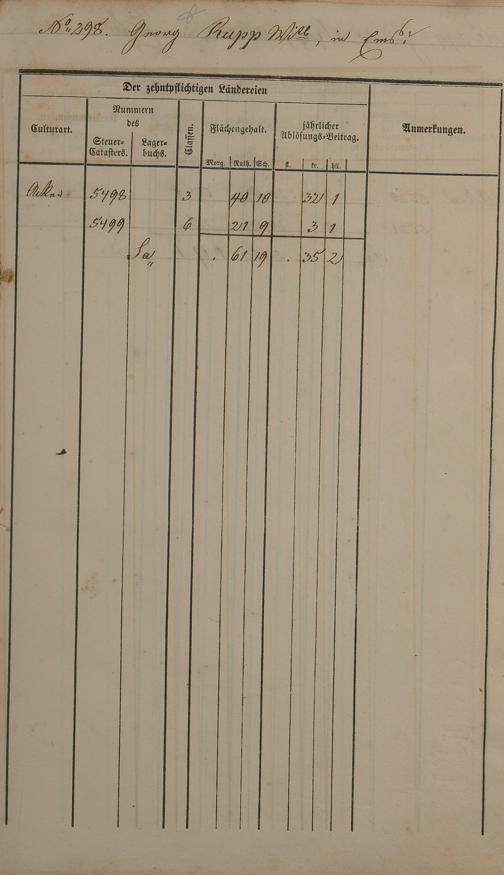 No 298. Georg Rupp Wwe, in Ems.
Der zehntpflichtigen Ländereien
Culturart.
Nummern
des
Steuer-
Catasters.
Lager-
buchs.
Classen.
Flächengehalt.
Morg. Ruth. Sch.
jährlicher
Ablösungs-Beitrag.
fl. kr. hll.
Anmerkungen.
Acker 5498 3 40 10 32 1
5499 6 21 9 3 1
Sa . 61 19 . 35 2